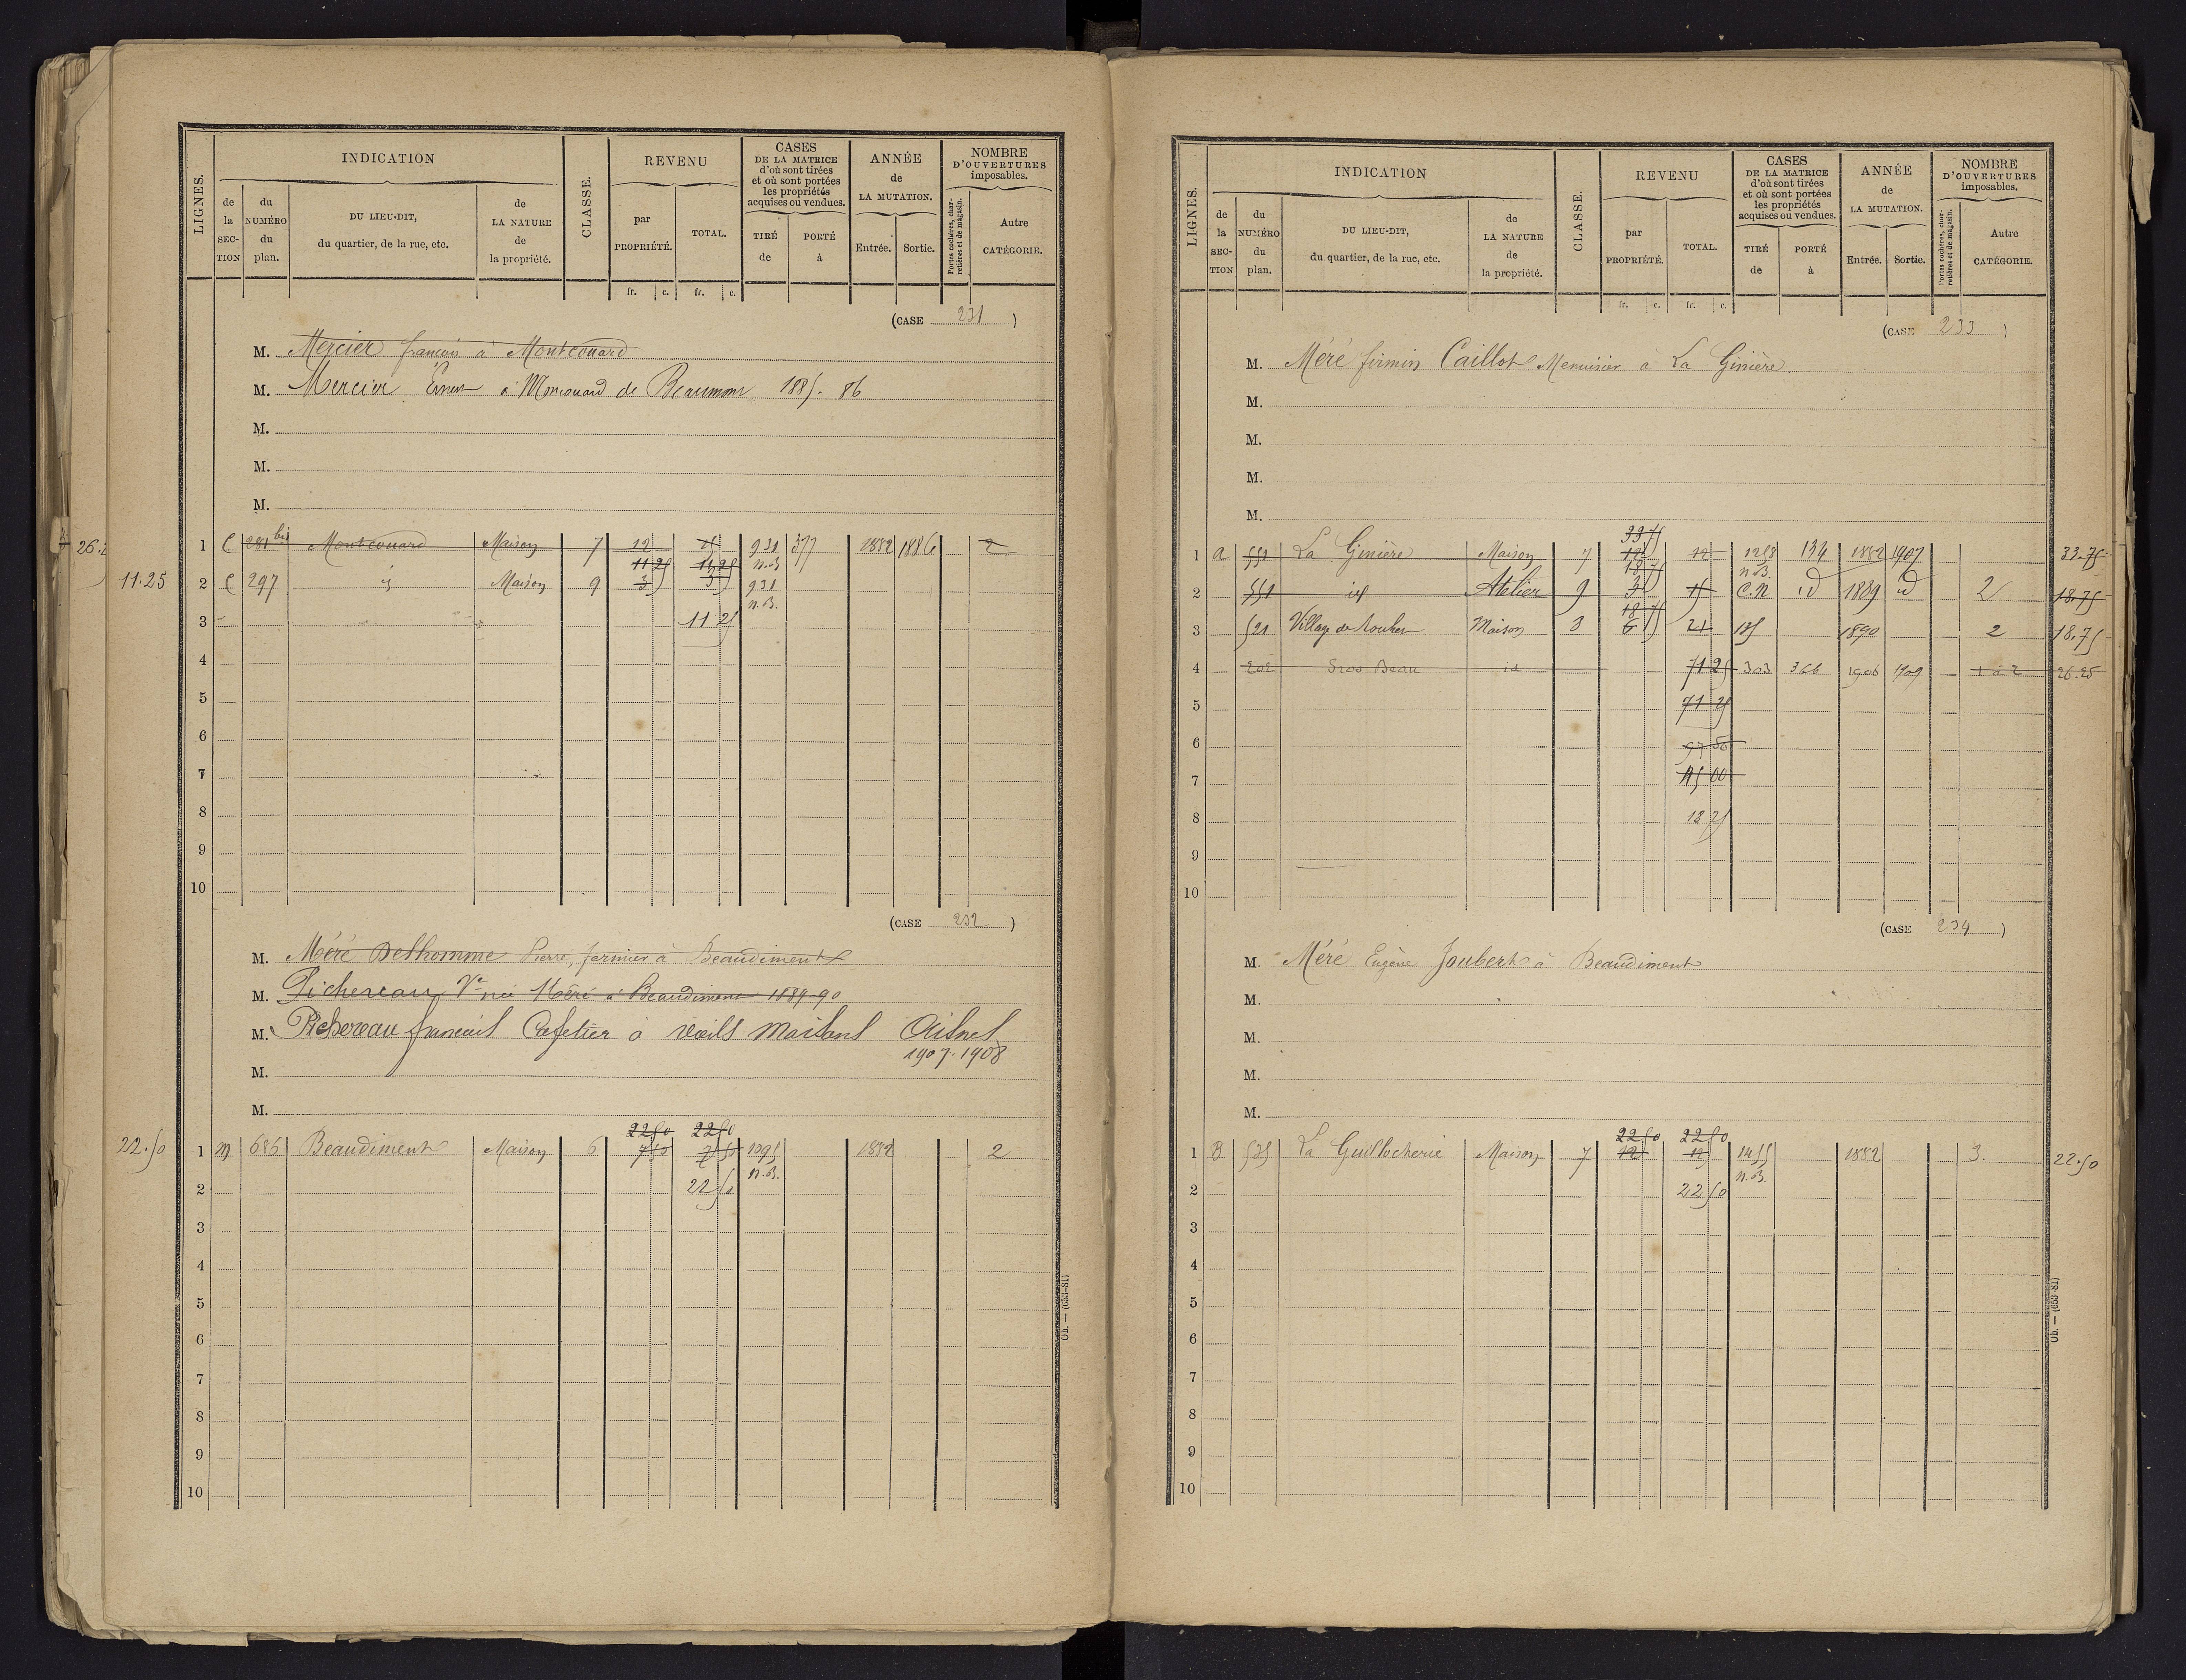 LIGNES. INDICATION CLASSE. REVENU CASES DE LA MATRICE d'où sont tirées et où sont portées les propriétés acquises ou vendues. ANNÉE de LA MUTATION. NOMBRE D'OUVERTURES imposables.
de la SECTION du NUMÉRO du plan. DU LIEU-DIT, du quartier, de la rue, etc. de LA NATURE de la propriété. par PROPRIÉTÉ. TOTAL. TIRÉ de PORTÉ à Entrée. Sortie. Portes cochères, charretières et de magasin. Autre CATÉGORIE.
fr. c. fr. c.
(CASE 231)
M. Mercier françois à Montcouard
M. Mercier Ernest à Moncouard de Beaumont 1885. 86
M.
M.
M.
1 C 281 bis Montcouard Maison 7 12 931 377 1882 1886 2
11 25 11 25 n.B
11.25 2 C 297 id Maison 9 3 3 931
n.B.
3 11 25
4
5
6
7
8
9
10
(CASE 232)
M. Méré Delhomme Pierre, fermier à Beaudiment
M. Pichereau Ve née Méré à Beaudiment 1889-90
M. Pichereau françois Cafetier à vieils Maisons Aisne
1907-1908
M.
M.
22 50 22 50
22.50 1 M 685 Beaudiment Maison 6 7 50 7 50 1395 1882 2
n.B.
2 22 50
3
4
5
6
7
8
9
10
Ob. — (653-81)
LIGNES. INDICATION CLASSE. REVENU CASES DE LA MATRICE d'où sont tirées et où sont portées les propriétés acquises ou vendues. ANNÉE de LA MUTATION. NOMBRE D'OUVERTURES imposables.
de la SECTION du NUMÉRO du plan. DU LIEU-DIT, du quartier, de la rue, etc. de LA NATURE de la propriété. par PROPRIÉTÉ. TOTAL. TIRÉ de PORTÉ à Entrée. Sortie. Portes cochères, charretières et de magasin. Autre CATÉGORIE.
fr. c. fr. c.
(CASE 233)
M. Méré firmin Caillot Menuisier à La Ginière.
M.
M.
M.
M.
33 75
1 a 551 La Ginière Maison 7 12 12 1253 134 1882 1907 33.75
18 75 n.B.
2 551 id Atelier 9 3 15 C.N id 1889 id 2 18.75
18 75
3 521 Village de Maison 3 6 21 185 1890 2 18.75
4 202 Gros Beau id 71 25 303 366 1906 1909 1 à 2 26.25
5 71 25
6 97 50
7 45 00
8 18 75
9
10
(CASE 234)
M. Méré Eugène Joubert à Beaudiment
M.
M.
M.
M.
22 50 22 50
1 B 525 La Guillocherie Maison 7 12 12 1455 1882 3. 22.50
n.B.
2 22 50
3
4
5
6
7
8
9
10
Ob. — (653-81)